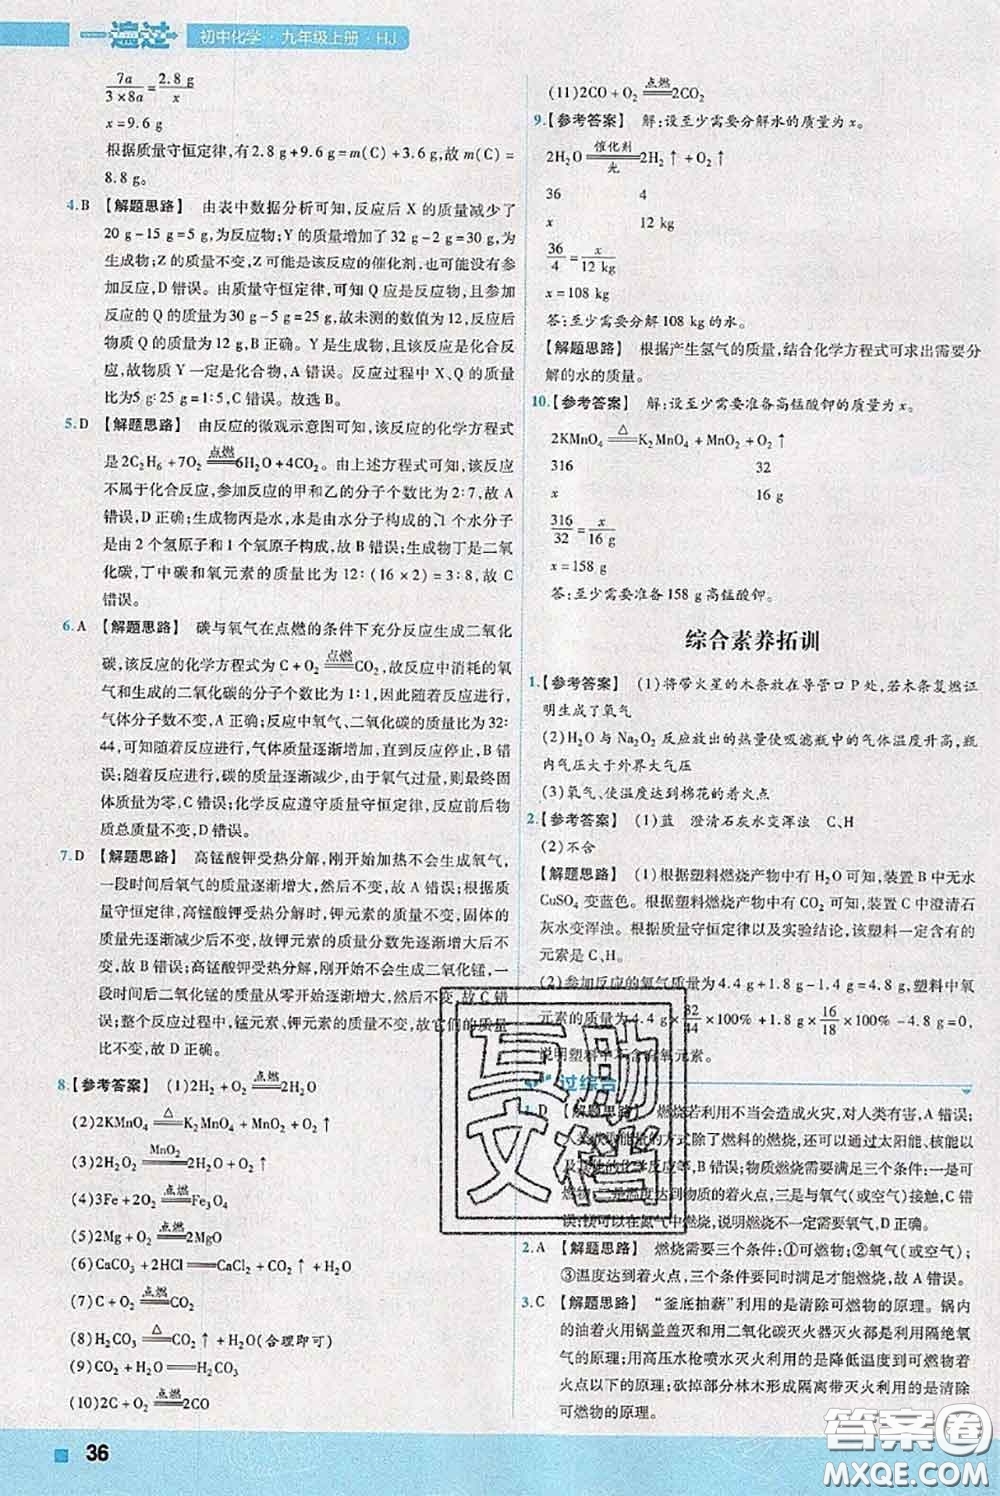 一遍过 初中化学·九年级上册·HJ
7a/(3×8a)=2.8 g/x
x=9.6 g
根据质量守恒定律,有2.8 g+9.6 g=m(C)+3.6 g,故m(C)=
8.8 g。
4.B 【解题思路】 由表中数据分析可知,反应后X的质量减少了
20 g-15 g=5 g,为反应物;Y的质量增加了32 g-2 g=30 g,为
生成物;Z的质量不变,Z可能是该反应的催化剂,也可能没有参
加反应,D错误。由质量守恒定律,可知Q应是反应物,且参加
反应的Q的质量为30 g-5 g=25 g,故未测的数值为12,反应后
物质Q的质量为12 g,B正确。Y是生成物,且该反应是分解反
应,故物质Y一定是化合物,A错误。反应过程中X、Q的质量
比为5 g∶25 g=1∶5,C错误。故选B。
5.D 【解题思路】 由反应的微观示意图可知,该反应的化学方程式
是2C₂H₆+7O₂ 点燃═ 6H₂O+4CO₂。由上述方程式可知,该反应
不属于化合反应,参加反应的甲和乙的分子个数比为2∶7,故A
错误,D正确;生成物丙是水,水是由水分子构成的,1个水分子
是由2个氢原子和1个氧原子构成,故B错误;生成物丁是二氧
化碳,丁中碳和氧元素的质量比为12∶(16×2)=3∶8,故C
错误。
6.A 【解题思路】 碳与氧气在点燃的条件下充分反应生成二氧化
碳,该反应的化学方程式为C+O₂ 点燃═ CO₂,故反应中消耗的氧
气和生成的二氧化碳的分子个数比为1∶1,因此随着反应进行,
气体分子数不变,A正确;反应中氧气、二氧化碳的质量比为32∶
44,可知随着反应进行,气体质量逐渐增加,直到反应停止,B错
误;随着反应进行,碳的质量逐渐减少,由于氧气过量,则最终固
体质量为零,C错误;化学反应遵守质量守恒定律,反应前后物
质总质量不变,D错误。
7.D 【解题思路】 高锰酸钾受热分解,刚开始加热不会生成氧气,
一段时间后氧气的质量逐渐增大,然后不变,故A错误;根据质
量守恒定律,高锰酸钾受热分解时,钾元素的质量不变,固体的
质量先逐渐减少后不变,故钾元素的质量分数先逐渐增大后不
变,故B错误;高锰酸钾受热分解,刚开始不会生成二氧化锰,一
段时间后二氧化锰的质量从零开始逐渐增大,然后不变,故C错
误;整个反应过程中,锰元素、钾元素的质量不变,故它们的质量
比不变,故D正确。
8.【参考答案】 (1)2H₂+O₂ 点燃═ 2H₂O
(2)2KMnO₄ △═ K₂MnO₄+MnO₂+O₂↑
(3)2H₂O₂ MnO₂═ 2H₂O+O₂↑
(4)3Fe+2O₂ 点燃═ Fe₃O₄
(5)2Mg+O₂ 点燃═ 2MgO
(6)CaCO₃+2HCl═CaCl₂+CO₂↑+H₂O
(7)C+O₂ 点燃═ CO₂
(8)H₂CO₃ △═ CO₂↑+H₂O(合理即可)
(9)CO₂+H₂O═H₂CO₃
(10)2C+O₂ 点燃═ 2CO
(11)2CO+O₂ 点燃═ 2CO₂
9.【参考答案】 解:设至少需要分解水的质量为x。
2H₂O 催化剂═光 2H₂↑+O₂↑
36 4
x 12 kg
36/4=x/12 kg
x=108 kg
答:至少需要分解108 kg的水。
【解题思路】 根据产生氢气的质量,结合化学方程式可求出需要分
解的水的质量。
10.【参考答案】 解:设至少需要准备高锰酸钾的质量为x。
2KMnO₄ △═ K₂MnO₄+MnO₂+O₂↑
316 32
x 16 g
316/32=x/16 g
x=158 g
答:至少需要准备158 g高锰酸钾。
综合素养拓训
1.【参考答案】 (1)将带火星的木条放在导管口P处,若木条复燃证
明生成了氧气
(2)H₂O与Na₂O₂反应放出的热量使吸滤瓶中的气体温度升高,瓶
内气压大于外界大气压
(3)氧气、使温度达到棉花的着火点
2.【参考答案】 (1)蓝 澄清石灰水变浑浊 C、H
(2)不含
【解题思路】 (1)根据塑料燃烧产物中有H₂O可知,装置B中无水
CuSO₄变蓝色。根据塑料燃烧产物中有CO₂可知,装置C中澄清石
灰水变浑浊。根据质量守恒定律以及实验结论,该塑料一定含有的
元素是C、H。
(2)参加反应的氧气质量为4.4 g+1.8 g-1.4 g=4.8 g,塑料中氧
元素的质量为4.4 g×32/44×100%+1.8 g×16/18×100%-4.8 g=0,
说明塑料中不含氧元素。
过综合
1.D 【解题思路】 燃烧若利用不当会造成火灾,对人类有害,A错误;
人类获取能量的方式除了燃料的燃烧,还可以通过太阳能、核能以
及其他的化学反应等,B错误;物质燃烧需要满足三个条件:一是可燃
物,二是温度达到物质的着火点,三是与氧气(或空气)接触,C错
误;镁可以在氮气中燃烧,说明燃烧不一定需要氧气,D正确。
2.A 【解题思路】 燃烧需要三个条件:①可燃物;②氧气(或空气);
③温度达到着火点,三个条件要同时满足才能燃烧,故选A。
3.C 【解题思路】 “釜底抽薪”利用的是清除可燃物的原理。锅内
的油着火用锅盖盖灭和用二氧化碳灭火器灭火利用的是隔绝氧
气的原理;用高压水枪喷水灭火利用的是降低温度到可燃物的
着火点以下的原理;砍掉部分林木形成隔离带灭火利用的是清除
可燃物的原理。
互助
文档
36
答案圈
MXQE.COM